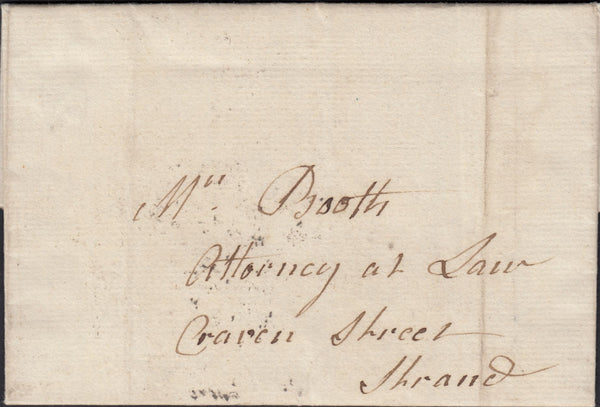 Mr Booth
Attorney at Law
Craven Street
Strand